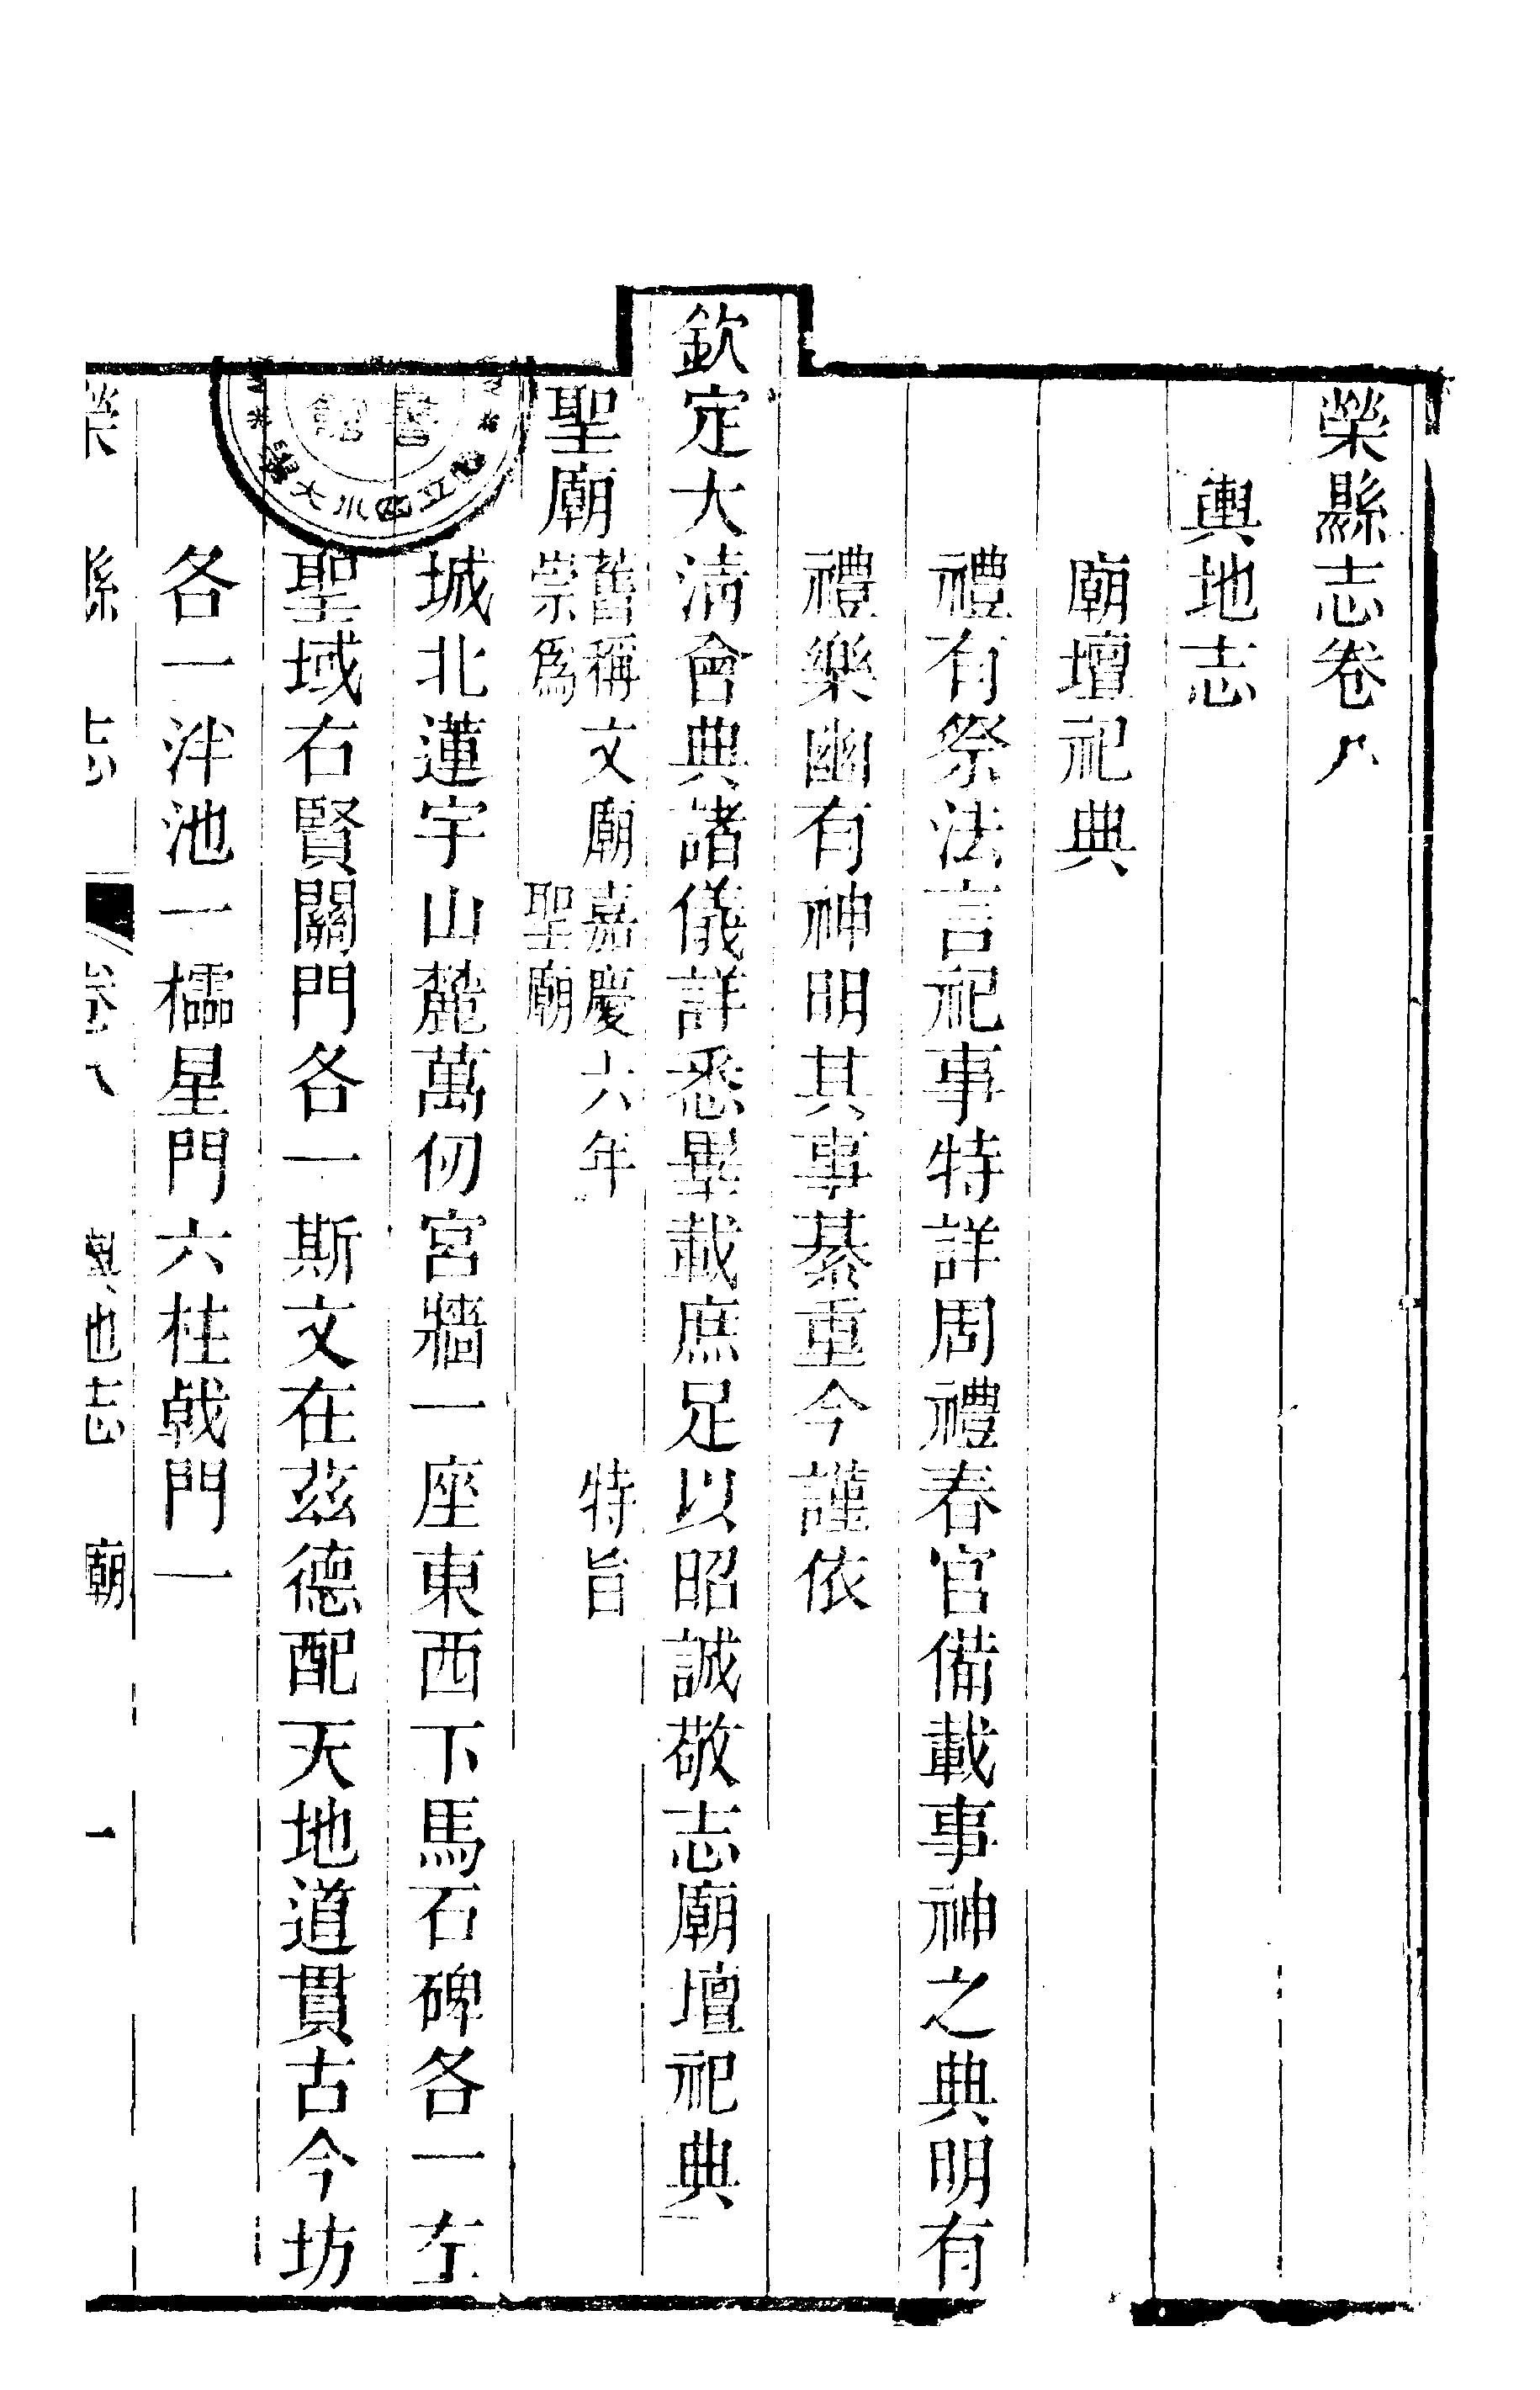 榮縣志卷八
輿地志
廟壇祀典
禮有祭法言祀事特詳周禮春官備載事神之典明有
禮樂幽有神明其事綦重今謹依
欽定大清會典諸儀詳悉畢載庶足以昭誠敬志廟壇祀典
聖廟
舊稱文廟嘉慶六年 特旨
崇為 聖廟
城北蓮宇山麓萬仞宮牆一座東西下馬石碑各一左
聖域右賢關門各一斯文在茲德配天地道貫古今坊
各一泮池一櫺星門六柱戟門一
榮縣志 卷八 輿地志 廟 一